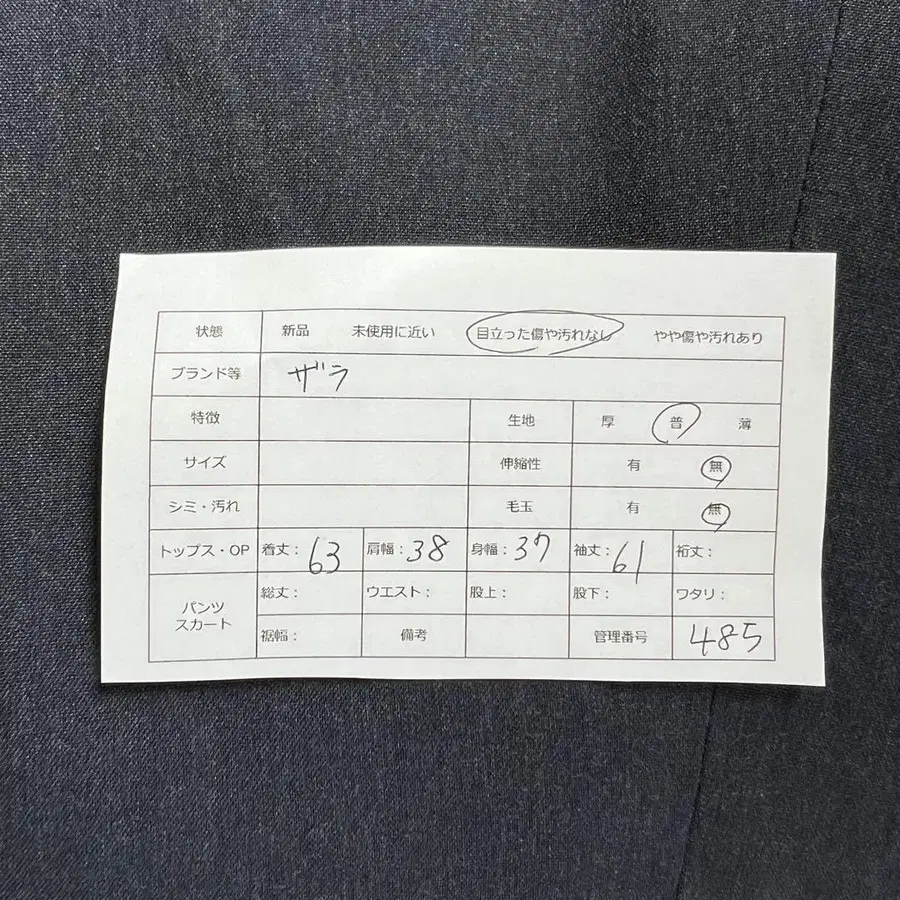 状態 新品 未使用に近い 目立った傷や汚れなし やや傷や汚れあり
ブランド等 ザラ
特徴 生地 厚 普 薄
サイズ 伸縮性 有 無
シミ・汚れ 毛玉 有 無
トップス・OP 着丈：63 肩幅：38 身幅：37 袖丈：61 裄丈：
パンツ スカート 総丈： ウエスト： 股上： 股下： ワタリ：
裾幅： 備考 管理番号 485